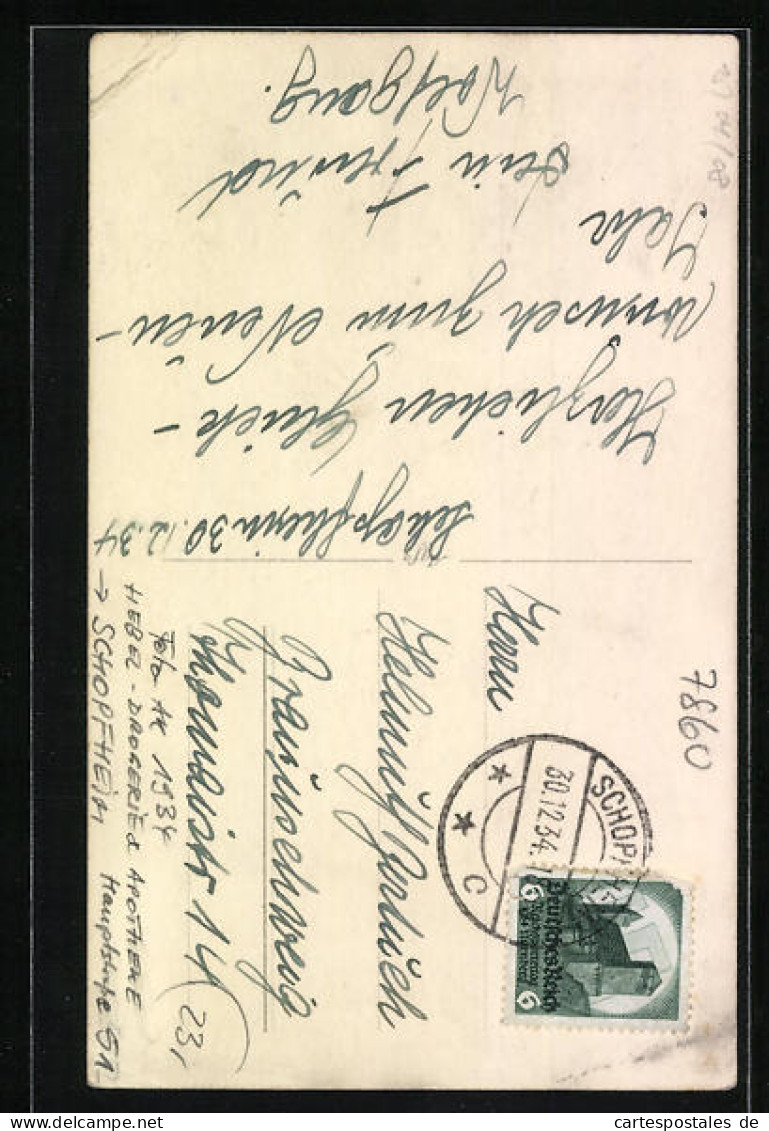 Schopfheim 30.12.34
Herzlichen Glück-
wunsch zum Neuen
Jahr
Dein Freund
Wolfgang.
Herrn
Helmuth
Braunschweig
14
7860
SCHOPF
30.12.34
C
6 6
Deutsches Reich
Foto AK 1934
HEBEL-DROGERIE & APOTHEKE
→ SCHOPFHEIM Hauptstraße 51
23,
cartespostales de